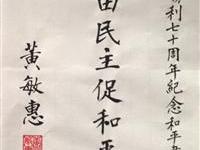 勝利七十周年紀念和平
由民主促和平
黃敏惠